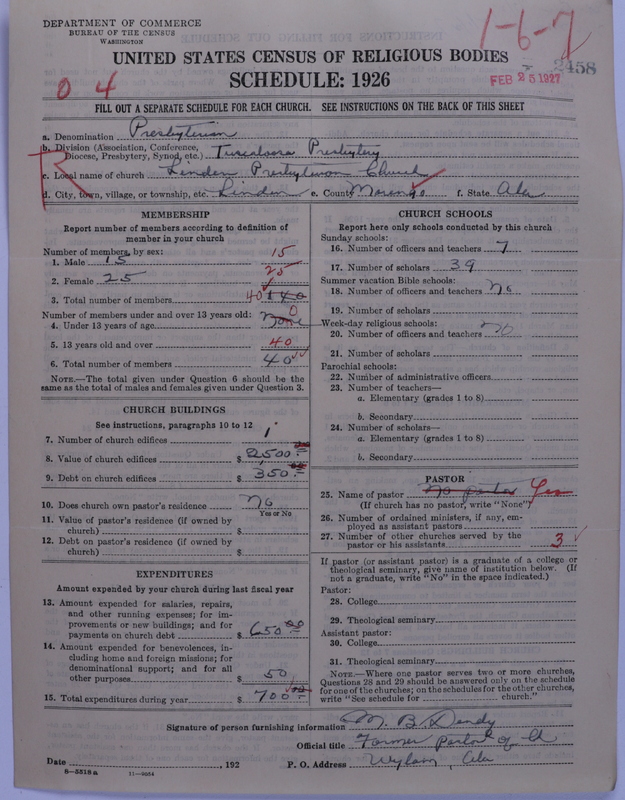 DEPARTMENT OF COMMERCE
BUREAU OF THE CENSUS
WASHINGTON
1-6-7
UNITED STATES CENSUS OF RELIGIOUS BODIES
SCHEDULE: 1926
0 4
FEB 25 1927
2458
FILL OUT A SEPARATE SCHEDULE FOR EACH CHURCH. SEE INSTRUCTIONS ON THE BACK OF THIS SHEET
a. Denomination Presbyterian
b. Division (Association, Conference,
Diocese, Presbytery, Synod, etc.) Tuscaloosa Presbytery
R
c. Local name of church Linden Presbyterian Church
d. City, town, village, or township, etc. Linden e. County Marengo f. State Ala
MEMBERSHIP
Report number of members according to definition of
member in your church
Number of members, by sex:
1. Male 15 15
2. Female 25 25
3. Total number of members 40 140
Number of members under and over 13 years old:
4. Under 13 years of age None 0
5. 13 years old and over 40
6. Total number of members 40
NOTE.—The total given under Question 6 should be the
same as the total of males and females given under Question 3.
CHURCH BUILDINGS
See instructions, paragraphs 10 to 12
7. Number of church edifices 1
8. Value of church edifices $ 2,500
9. Debt on church edifices $ 350
10. Does church own pastor's residence No
Yes or No
11. Value of pastor's residence (if owned by
church) $
12. Debt on pastor's residence (if owned by
church) $
EXPENDITURES
Amount expended by your church during last fiscal year
13. Amount expended for salaries, repairs,
and other running expenses; for im-
provements or new buildings; and for
payments on church debt $ 650.00
14. Amount expended for benevolences, in-
cluding home and foreign missions; for
denominational support; and for all
other purposes $ 50
15. Total expenditures during year $ 700
CHURCH SCHOOLS
Report here only schools conducted by this church
Sunday schools:
16. Number of officers and teachers 7
17. Number of scholars 39
Summer vacation Bible schools:
18. Number of officers and teachers No
19. Number of scholars
Week-day religious schools:
20. Number of officers and teachers No
21. Number of scholars
Parochial schools:
22. Number of administrative officers
23. Number of teachers—
a. Elementary (grades 1 to 8)
b. Secondary
24. Number of scholars—
a. Elementary (grades 1 to 8)
b. Secondary
PASTOR
25. Name of pastor No pastor Yes
(If church has no pastor, write "None")
26. Number of ordained ministers, if any, em-
ployed as assistant pastors
27. Number of other churches served by the
pastor or his assistants 3
If pastor (or assistant pastor) is a graduate of a college or
theological seminary, give name of institution below. (If
not a graduate, write "No" in the space indicated.)
Pastor:
28. College
29. Theological seminary
Assistant pastor:
30. College
31. Theological seminary
NOTE.—Where one pastor serves two or more churches,
Questions 28 and 29 should be answered only on the schedule
for one of the churches; on the schedules for the other churches,
write "See schedule for church."
Signature of person furnishing information M. B. Dendy
Official title Former Pastor of Ch
Date , 192 P. O. Address Wylam, Ala
8-5518a 11-9664